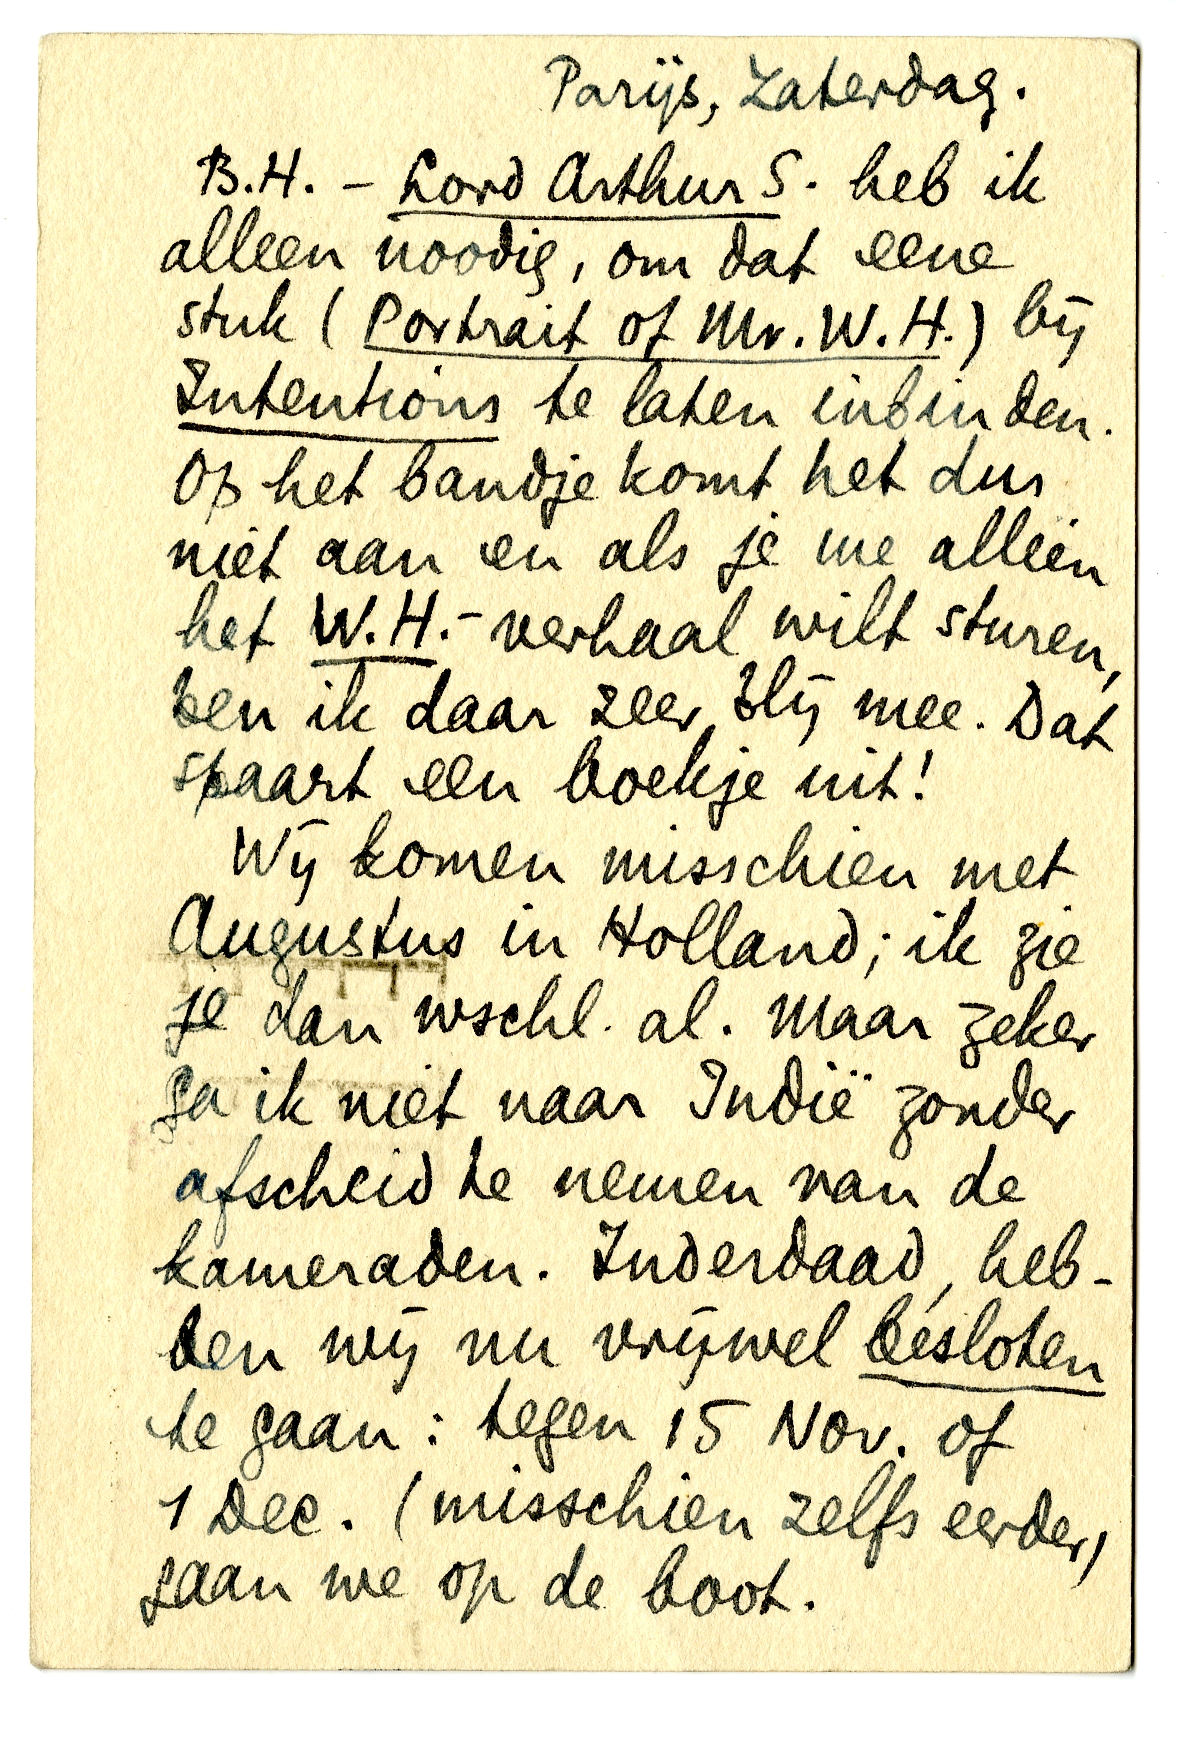 Parijs, Zaterdag.
B.H. – Lord Arthur S. heb ik
alleen noodig, om dat eene
stuk (Portrait of Mr. W.H.) bij
Intentions te laten inbinden.
Op het bandje komt het dus
niet aan en als je me alleen
het W.H.-verhaal wilt sturen,
ben ik daar zeer blij mee. Dat
spaart een boekje uit!
Wij komen misschien met
Augustus in Holland; ik zie
je dan wschl. al. Maar zeker
ga ik niet naar Indië zonder
afscheid te nemen van de
kameraden. Inderdaad, heb-
ben wij nu vrijwel besloten
te gaan: tegen 15 Nov. of
1 Dec. (misschien zelfs eerder)
gaan we op de boot.